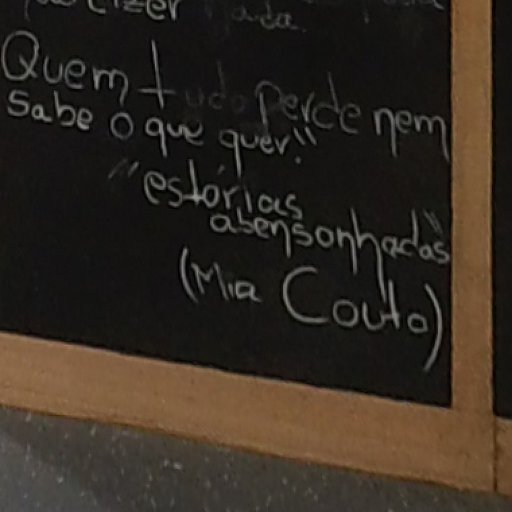 dizer nada.
Quem tudo perde nem
sabe o que quer!"
"estórias
abensonhadas"
(Mia Couto)